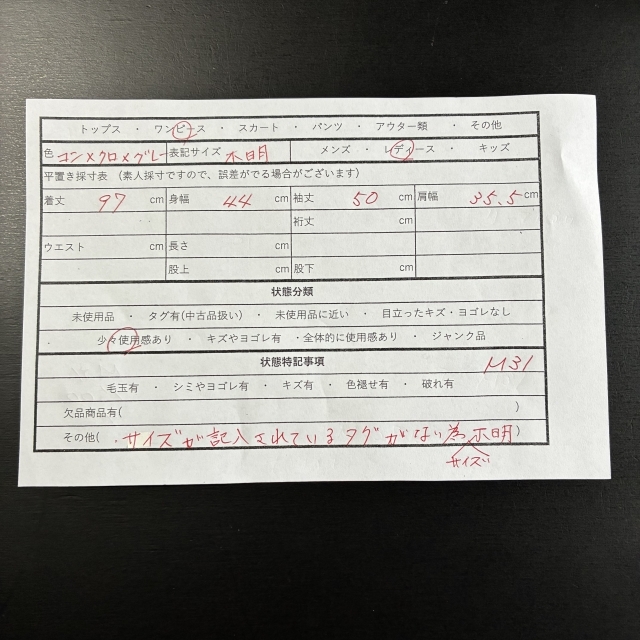 トップス ・ ワンピース ・ スカート ・ パンツ ・ アウター類 ・ その他
色 コン×クロ×グレー 表記サイズ 不明 メンズ ・ レディース ・ キッズ
平置き採寸表 (素人採寸ですので、誤差がでる場合がございます)
着丈 97 cm 身幅 44 cm 袖丈 50 cm 肩幅 35.5 cm
裄丈 cm
ウエスト cm 長さ cm
股上 cm 股下 cm
状態分類
未使用品 ・ タグ有(中古品扱い) ・ 未使用品に近い ・ 目立ったキズ・ヨゴレなし
少々使用感あり ・ キズやヨゴレ有 ・全体的に使用感あり ・ ジャンク品
状態特記事項 M31
毛玉有 ・ シミやヨゴレ有 ・ キズ有 ・ 色褪せ有 ・ 破れ有
欠品商品有( )
その他( ・サイズが記入されているタグがない為不明)
サイズ